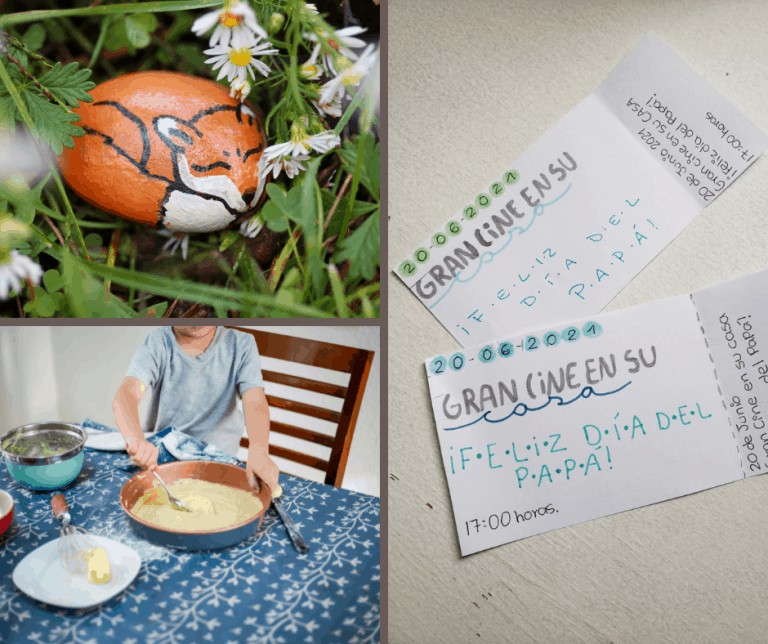 20-06-2021
GRAN CiNE EN SU
casa
¡F·E·L·i·Z
D·Í·A D·E·L
P·A·P·Á!
20 de Junio 2021
Gran cine en su CASA
¡Feliz día del Papá!
17:00 horos
20-06-2021
GRAN CiNE EN SU
casa
¡F·E·L·i·Z D·Í·A D·E·L
P·A·P·Á!
17:00 horos.
20 de Junio
Gran cine en su casa
del Papá!